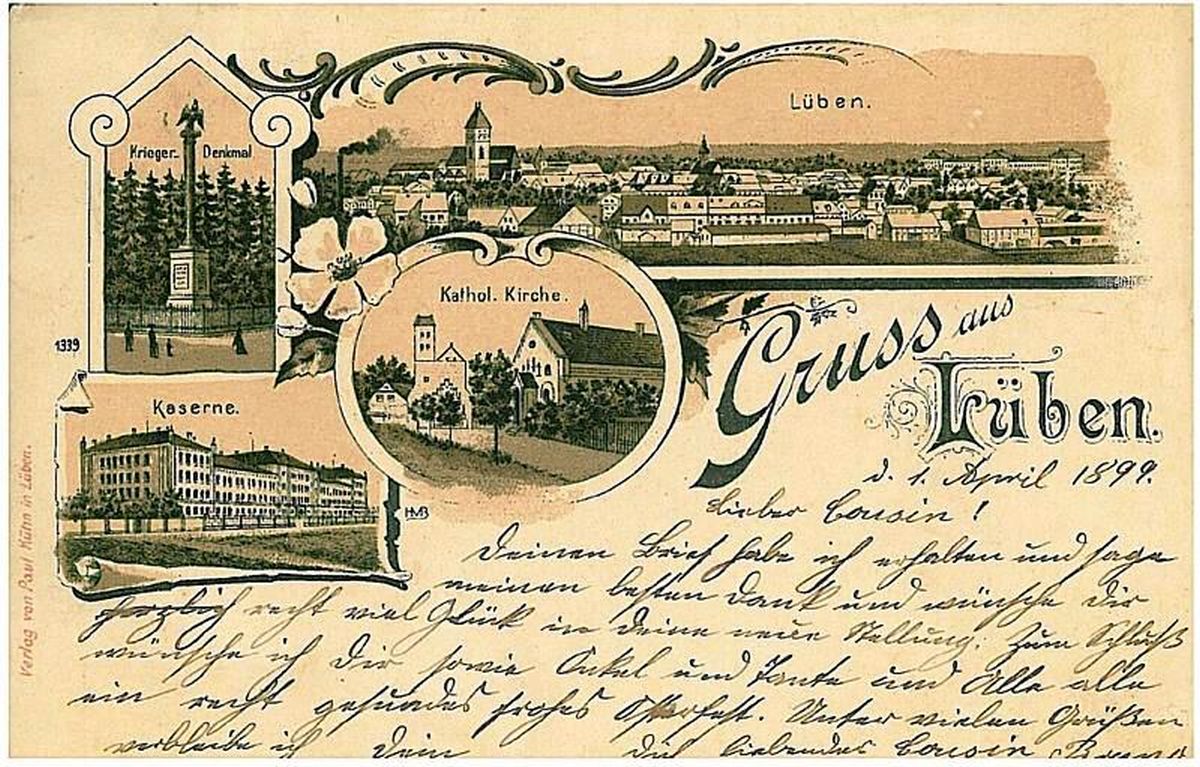 Lüben.
Krieger- Denkmal
Kathol. Kirche.
1339
Kaserne.
HMB
Verlag von Paul Kühn in Lüben.
Gruss aus
Lüben.
d. 1. April 1899.
Lieber Cousin!
Deinen Brief habe ich erhalten und sage
meinen besten Dank und wünsche Dir
herzlich recht viel Glück in Deine neue Stellung. Zum Schluß
wünsche ich Dir sowie Onkel und Tante und Alle alle
ein recht gesundes frohes Osterfest. Unter vielen Grüßen
verbleibe ich Dein Dich liebender Cousin